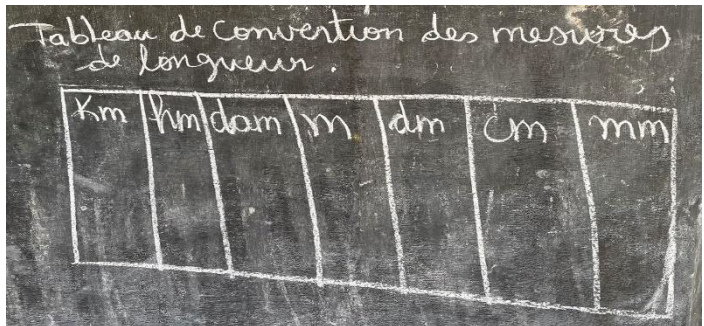 Tableau de Convertion des mesures
de longueur.
Km hm dam m dm cm mm